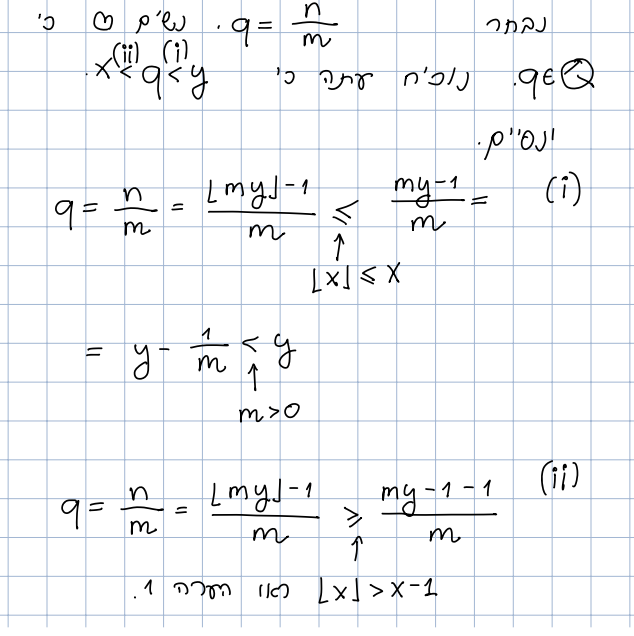 נבחר q = n/m. נשים ♡ כי
q∈ℚ. נוכיח שתה כי x <^(ii) q <^(i) y.
ונסיים.
(i) q = n/m = (⌊my⌋-1)/m ≤ (my-1)/m =
↑
⌊x⌋ ≤ x
= y - 1/m < y
↑
m>0
(ii) q = n/m = (⌊my⌋-1)/m ≥ (my-1-1)/m
↑
⌊x⌋ > x-1 ראו הערה 1.